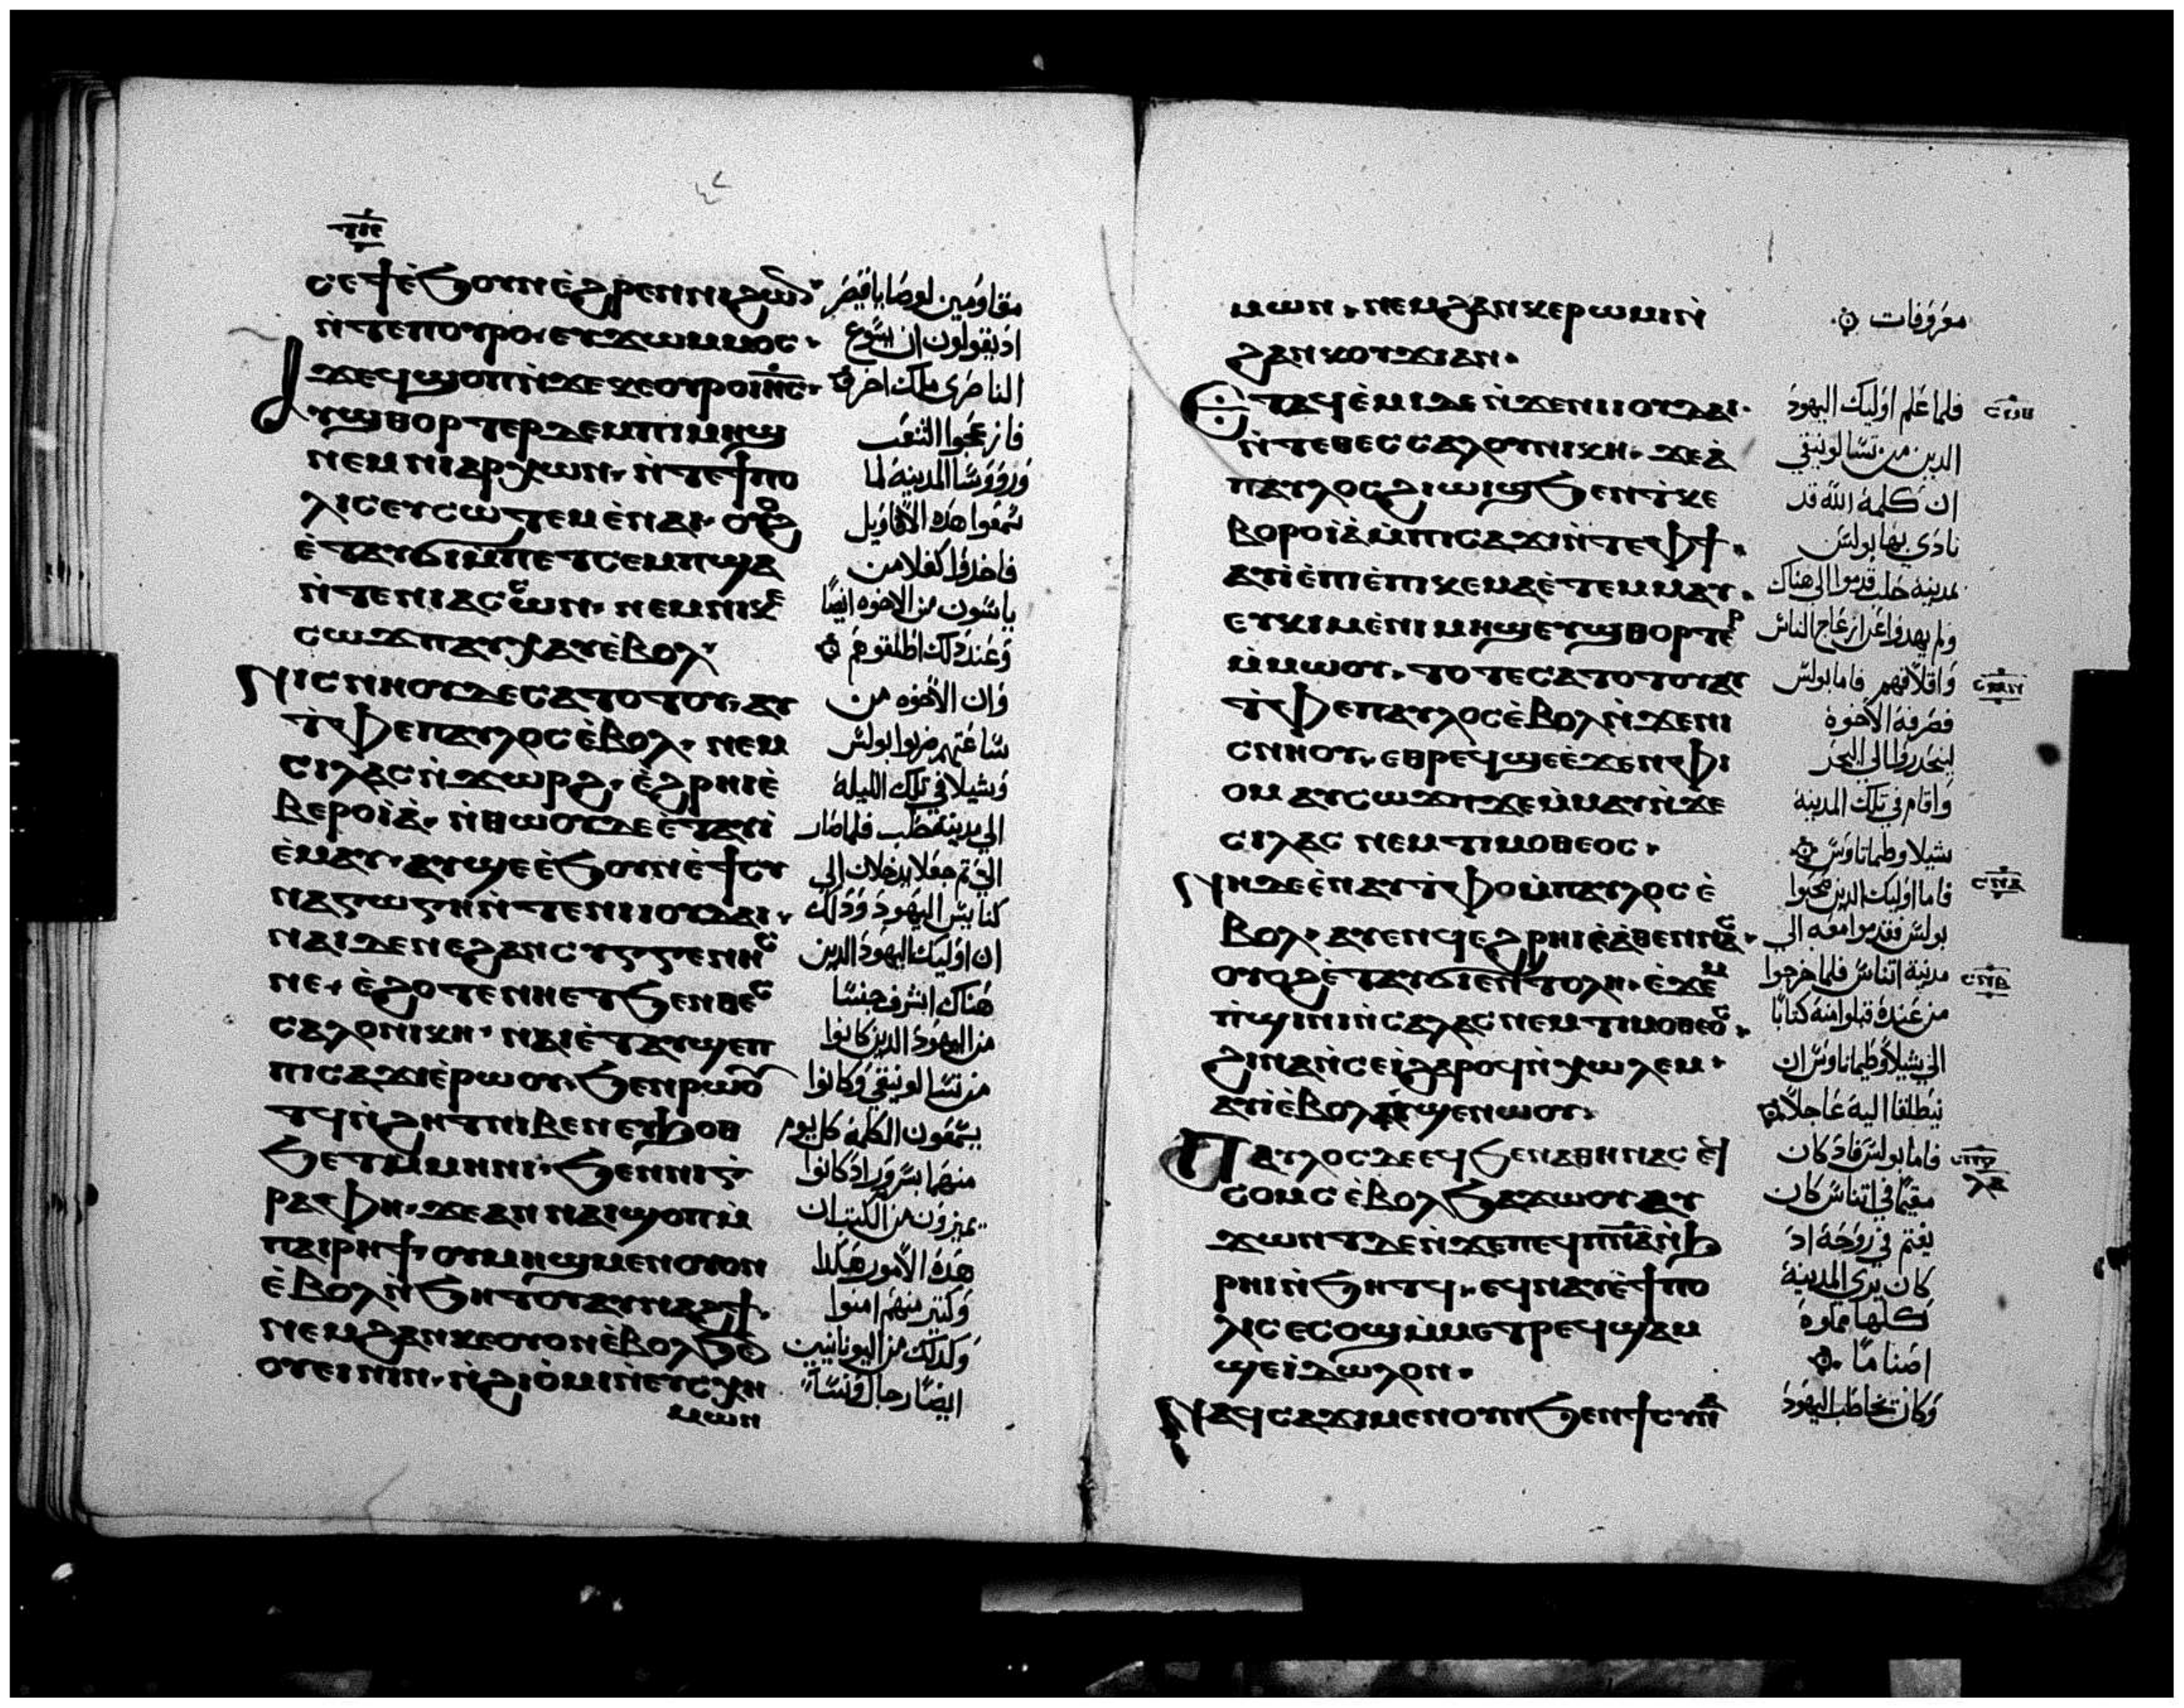 ⲥⲉϯⲉ̀ϧⲟⲩⲛⲉ̀ϩⲣⲉⲛⲛⲓϩⲱⲛ
ⲛ̀ⲧⲉⲡⲟⲩⲣⲟ· ⲉⲩϫⲱⲙⲙⲟⲥ·
ϫⲉϥϣⲟⲡⲛ̀ϫⲉⲕⲉⲟⲩⲣⲟⲓⲏ̅ⲥ̅·
ⲁⲩϣⲑⲟⲣⲧⲉⲣⲇⲉⲙⲡⲓⲙⲏϣ
ⲛⲉⲙⲛⲓⲁⲣⲭⲱⲛ· ⲛ̀ⲧⲉϯⲡⲟ
ⲗⲓⲥⲉⲩⲥⲱⲧⲉⲙⲉ̀ⲛⲁⲓ· ⲟⲩⲟϩ
ⲉ̀ⲧⲁⲩϭⲓⲙ̀ⲡⲉⲧⲥⲉⲙⲡϣⲁ
ⲛ̀ⲧⲉⲛⲓⲁⲥⲥⲱⲛ· ⲛⲉⲙⲡⲓⲕⲉ
ⲥⲱϫⲡⲁⲩⲭⲁⲩⲉ̀ⲃⲟⲗ·
ⲛⲓⲥⲛⲏⲟⲩⲇⲉⲥⲁⲧⲟⲧⲟⲩ· ⲁⲩ
ⲧ̀ⲫⲉⲡⲁⲩⲗⲟⲥⲉ̀ⲃⲟⲗ· ⲛⲉⲙ
ⲥⲓⲗⲁⲥⲛ̀ϫⲱⲣϩ· ⲉ̀ϩⲣⲏⲓⲉ̀
ⲃⲉⲣⲟⲓⲁ̀· ⲛ̀ⲑⲱⲟⲩⲇⲉⲉ̀ⲧⲁⲩⲓ̀
ⲉ̀ⲙⲁⲩ· ⲁⲩϣⲉⲉ̀ϧⲟⲩⲛⲉ̀ϯⲥⲩ
ⲛⲁⲅⲱⲅⲏⲛ̀ⲧⲉⲛⲓⲓⲟⲩⲇⲁⲓ·
ⲛⲁⲓⲇⲉⲛⲉϩⲁⲛⲥⲩⲅⲅⲉⲛⲏⲥ
ⲛⲉ· ⲉ̀ϩⲟⲧⲉⲛⲏⲉⲧϧⲉⲛⲑⲉⲥ
ⲥⲁⲗⲟⲛⲓⲕⲏ· ⲛⲁⲓⲉ̀ⲧⲁⲩϣⲉⲡ
ⲡⲓⲥⲁϫⲓⲉ̀ⲣⲱⲟⲩ· ϧⲉⲛⲣⲱⲟⲩ
ⲧϥⲛ̀ϩⲏⲧⲛⲓⲃⲉⲛⲉⲩϧⲟⲑ
ϧⲉⲧⲙ̀ⲙⲏⲛⲓ· ϧⲉⲛⲛⲓⲅ
ⲣⲁⲫⲏ· ϫⲉⲁⲛⲛⲁⲓϣⲟⲡⲙ̀
ⲡⲁⲓⲣⲏϯ· ⲟⲩⲙⲏϣⲙⲉⲛⲟⲩⲟⲛ
ⲉ̀ⲃⲟⲗⲛ̀ϧⲏⲧⲟⲩⲁⲩⲛⲁϩϯ·
ⲛⲉⲙϩⲁⲛⲕⲉⲟⲩⲟⲛⲉ̀ⲃⲟⲗϧⲉ
ⲟⲩⲉⲓⲛⲓⲛ· ⲛ̀ϩⲓⲟ̀ⲙⲓⲛ̀ⲉⲩⲥⲭⲏ
ⲙⲱⲛ
مقاومين لوصايا قيصر
اذ يقولون ان يسوع
الناصرى ملك اخر
فانزعجوا الشعب
وروؤسا المدينة لما
سمعوا هذه الاقاويل
فاخذوا كفلا من
ياسون من الاخوه ايضًا
وعند ذلك اطلقوهم
وان الاخوه من
ساعتهم صرفوا بولس
وشيلا في تلك الليلة
الي مدينة حلب فلما صار
الي ثم جعلا يدخلان الى
كنايس اليهود وذلك
ان اوليك اليهود الذين
هناك اشرف جنسًا
من اليهود الذين كانوا
من تسالونيقي وكانوا
يسمعون الكلمة كل يوم
منهما بسرور اذ كانوا
يميزون من الكتب ان
هذه الامور هكذا
وكثير منهم امنوا
وكذلك من اليونانيين
ايضًا رجال ونسآ
ⲙⲱⲛ· ⲛⲉⲙϩⲁⲛⲕⲉⲣⲱⲙⲓⲛ̀
ϩⲁⲛⲕⲟⲩϫⲓⲁⲛ·
ⲉⲧⲁϥⲉ̀ⲙⲓⲇⲉⲛ̀ϫⲉⲛⲓⲓⲟⲩⲇⲁⲓ·
ⲛ̀ⲧⲉⲑⲉⲥⲥⲁⲗⲟⲩⲛⲓⲕⲏ· ϫⲉⲁ̀
ⲡⲁⲩⲗⲟⲥϩⲓⲱⲓϣϧⲉⲛⲧ̀ⲕⲉ
ⲃⲟⲣⲟⲓⲁ̀ⲙ̀ⲡⲓⲥⲁϫⲓⲛ̀ⲧⲉⲫϯ·
ⲁⲩⲓ̀ⲉ̀ⲡⲓⲉ̀ⲡⲓⲕⲉⲙⲁⲉ̀ⲧⲉⲙⲙⲁⲩ·
ⲉⲩⲕⲓⲙⲉ̀ⲛⲓⲙⲏϣⲉⲩϣⲑⲟⲣⲧⲉⲣ
ⲙ̀ⲙⲱⲟⲩ· ⲧⲟⲧⲉⲥⲁⲧⲟⲧⲟⲩⲁⲩ
ⲧ̀ⲫⲉⲡⲁⲩⲗⲟⲥⲉ̀ⲃⲟⲗⲛ̀ϫⲉⲛⲓ
ⲥⲛⲏⲟⲩ· ⲉⲑⲣⲉϥϣⲉⲉ̀ϫⲉⲛⲫⲓ
ⲟⲙ ⲁⲩⲥⲱϫⲡⲇⲉⲙ̀ⲙⲁⲩⲛ̀ϫⲉ
ⲥⲓⲗⲁⲥ ⲛⲉⲙⲧⲓⲙⲟⲑⲉⲟⲥ·
ⲛⲏⲇⲉⲉ̀ⲛⲁⲩⲧ̀ⲫⲟⲙ̀ⲡⲁⲩⲗⲟⲥ ⲉ̀
ⲃⲟⲗ· ⲁⲩⲉⲛϥⲉϩⲣⲏⲓⲉ̀ⲁ̀ⲑⲉⲛⲛⲁⲥ·
ⲟⲩⲟϩⲉ̀ⲧⲁⲩϭⲓⲉⲛⲧⲟⲗⲏ· ⲉ̀ϫⲉⲙ
ⲡ̀ϣⲓⲛⲓⲛ̀ⲥⲁⲗⲁⲥⲛⲉⲙⲧⲓⲙⲟⲑⲉⲟⲥ·
ϩⲓⲛⲁⲛ̀ⲥⲉⲓ̀ϩⲁⲣⲟϥⲛ̀ⲭⲱⲗⲉⲙ·
ⲁⲩⲓ̀ⲉ̀ⲃⲟⲗ ϣⲉⲛⲱⲟⲩ·
ⲡⲁⲩⲗⲟⲥⲇⲉⲉϥϧⲉⲛⲁⲑⲏⲛⲁⲥ
ⲥⲟⲙⲥ ⲉ̀ⲃⲟⲗϧⲁϫⲱⲟⲩ ⲁⲩ
ϫⲱⲛⲧⲇⲉⲛ̀ϫⲉⲡⲉϥⲡ̅ⲛ̅ⲁ̅ⲛ̀ϧ
ⲣⲏⲓⲛ̀ϧⲏⲧϥ· ⲉϥⲛⲁⲩⲉ̀ϯⲡⲟ
ⲗⲓⲥ ⲉⲥⲟϣⲙ̀ⲙⲉⲧⲣⲉϥϣⲁⲙ
ϣⲉⲓ̀ⲇⲱⲗⲟⲛ·
ⲛⲁϥⲥⲁϫⲓⲙⲉⲛⲟⲩⲛϧⲉⲛϯⲥⲩⲛⲁ
معروفات
فلما علم اوليك اليهود
الذين من تسالونيقي
ان كلمة الله قد
نادى بها بولس
بمدينة حلب قدموا الي هناك
ولم يهدوا عن ازعاج الناس
واقلاقهم فاما بولس
فصرفه الاخوة
لينحدر طالب البحر
واقام في تلك المدينة
شيلا وطيماتاوس
فاما اوليك الذين صحبوا
بولس فقدموا معه الي
مدينة اتناس فلما خرجوا
من عنده قبلوا منه كتابًا
الي شيلا وطيماتاوس ان
ينطلقا اليه عاجلًا
فاما بولس فاذ كان
مقيمًا في اتناس كان
يغتم في روحه اذ
كان يرى المدينة
كلها مملوة
اصنامًا
وكان يخاطب اليهود